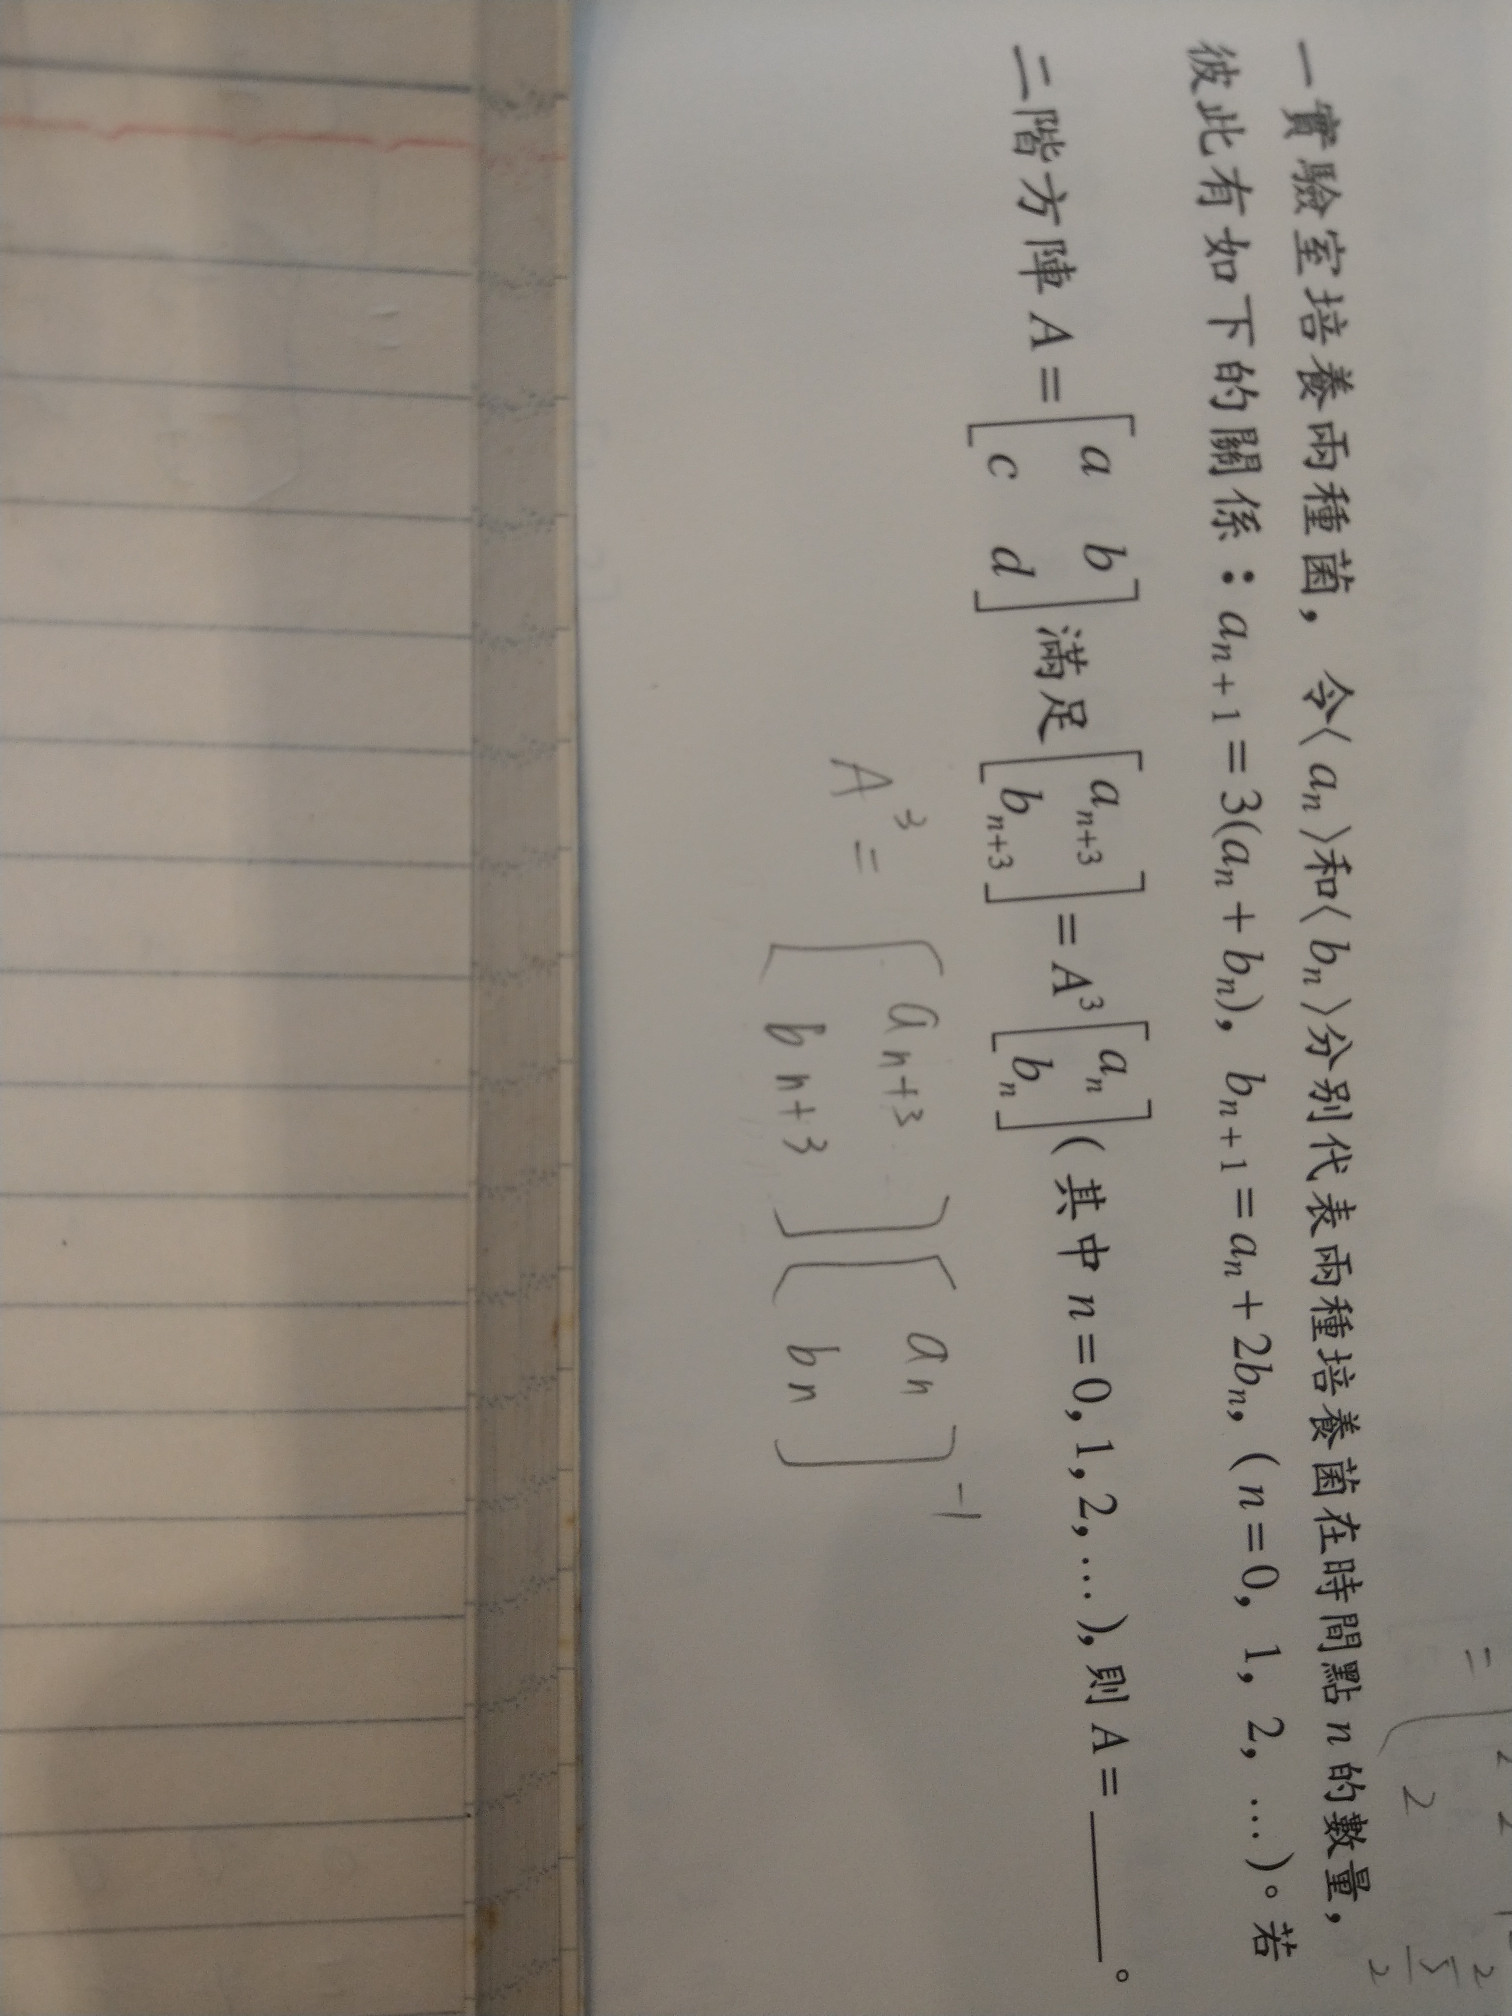 一實驗室培養兩種菌，令⟨aₙ⟩和⟨bₙ⟩分別代表兩種培養菌在時間點n的數量，
彼此有如下的關係：aₙ₊₁=3(aₙ+bₙ)，bₙ₊₁=aₙ+2bₙ，(n=0, 1, 2, …)。若
二階方陣 A=[a b; c d]滿足[aₙ₊₃; bₙ₊₃]=A³[aₙ; bₙ](其中 n=0, 1, 2, …)，則 A=______。
A³=[aₙ₊₃; bₙ₊₃][aₙ; bₙ]⁻¹